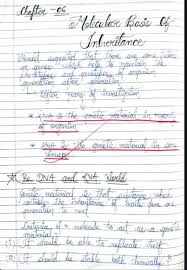 Chapter - 06
Molecular Basis Of
Inheritance
Mendel suggested that there are some factors
or genes which help to maintain the
phenotypes and genotypes of organism
generation after generation
After years of investigation
DNA is the genetic material in majority
of organism
RNA is the genetic material in some
viruses
The DNA and RNA World
Genetic material is that substance which
controls the inheritance of traits from one
generation to next
Criteria of a molecule to act as a genetic
(i) It should be able to replicate itself
(ii) It should be stable both chemically